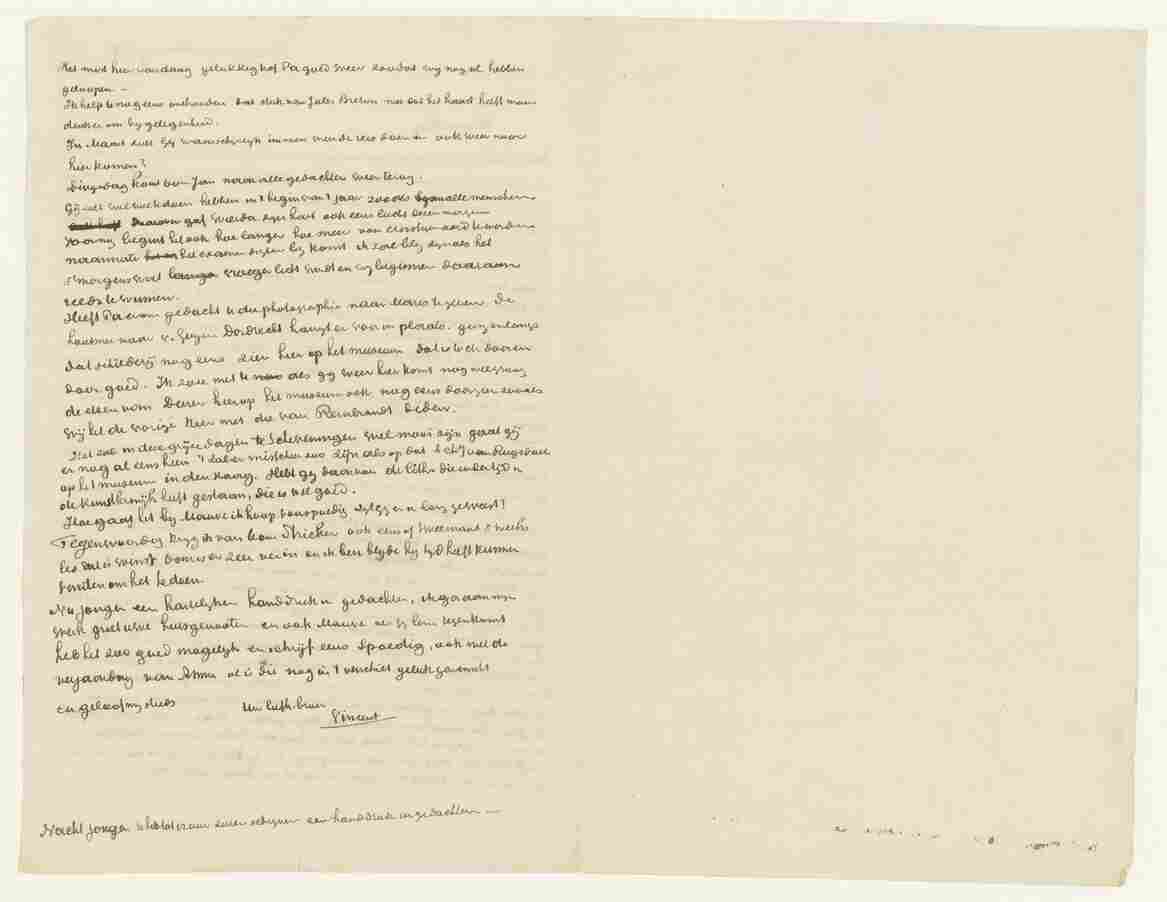 Het mist hier vandaag gelukkig had Pa goed weer zoodat wij nog al hebben
geloopen. -
Ik help u nog eens onthouden dat stuk van Jules Breton wat het hart heeft maar
denk er om by gelegenheid.
In Maart zult gy waarschynlyk immers weer de reis doen en ook weer naar
hier komen?
Dingsdag kwam Oom Jan
Gij zult wel werk doen hebben in 't begin van 't jaar zooals alle menschen
gaf Mendes zyn hart ook eens lucht dezen morgen
Voor my begint het ook hoe langer hoe meer van
naarmate het examen digter by komt. ik zoe bly zyn als het
's morgens wat vroeger licht wordt en wy beginnen daar aan
reeds te winnen.
Heeft Pa er om gedacht u die photographie naar Maris te geven. De
houtsnee naar v. Goyen Dordrecht hangt er voor in plaats. gisteren
dat schilderij nog eens zien hier op het museum dat is toch door en
door goed. Ik zou met u als gy weer hier komt nog wel graag
de etsen van Dürer hier op het museum ook nog eens doorzien zooals
wy het de vorige keer met die van Rembrandt deden.
Het zal in deze gryze dagen te Scheveningen wel mooi zyn gaat gij
er nog al eens heen 't zal er misschien zoo zijn als op dat schij van Ruysdael
op het museum in den Haag. Hebt gy daarvan de litho die indertyd in
de Kunstkronijk heeft gestaan, die is wel goed.
Hoe gaat het by Mauve ik hoop voorspoedig zyt gy er al lang geweest?
Tegenwoordig kryg ik van Oom Stricker ook eens of tweemaal 's weeks
les dat is winst Oom is er zeer in en ik ben blyde hy tyd heeft kunnen
vinden om het te doen.
Nu jongen een hartelyken handdruk in gedachten, ik ga aan myn
werk groet uwe huisgenooten en ook Mauve als gy hem tegenkomt
heb het zoo goed mogelyk en schrijf eens spoedig, ook met de
verjaardag van Anna al is die nog in 't verschiet geluk gewenscht
en geloof my steeds
Uw liefh. broer
Vincent
Nacht jongen schrijf als gy kunt eens een handdruk in gedachten —